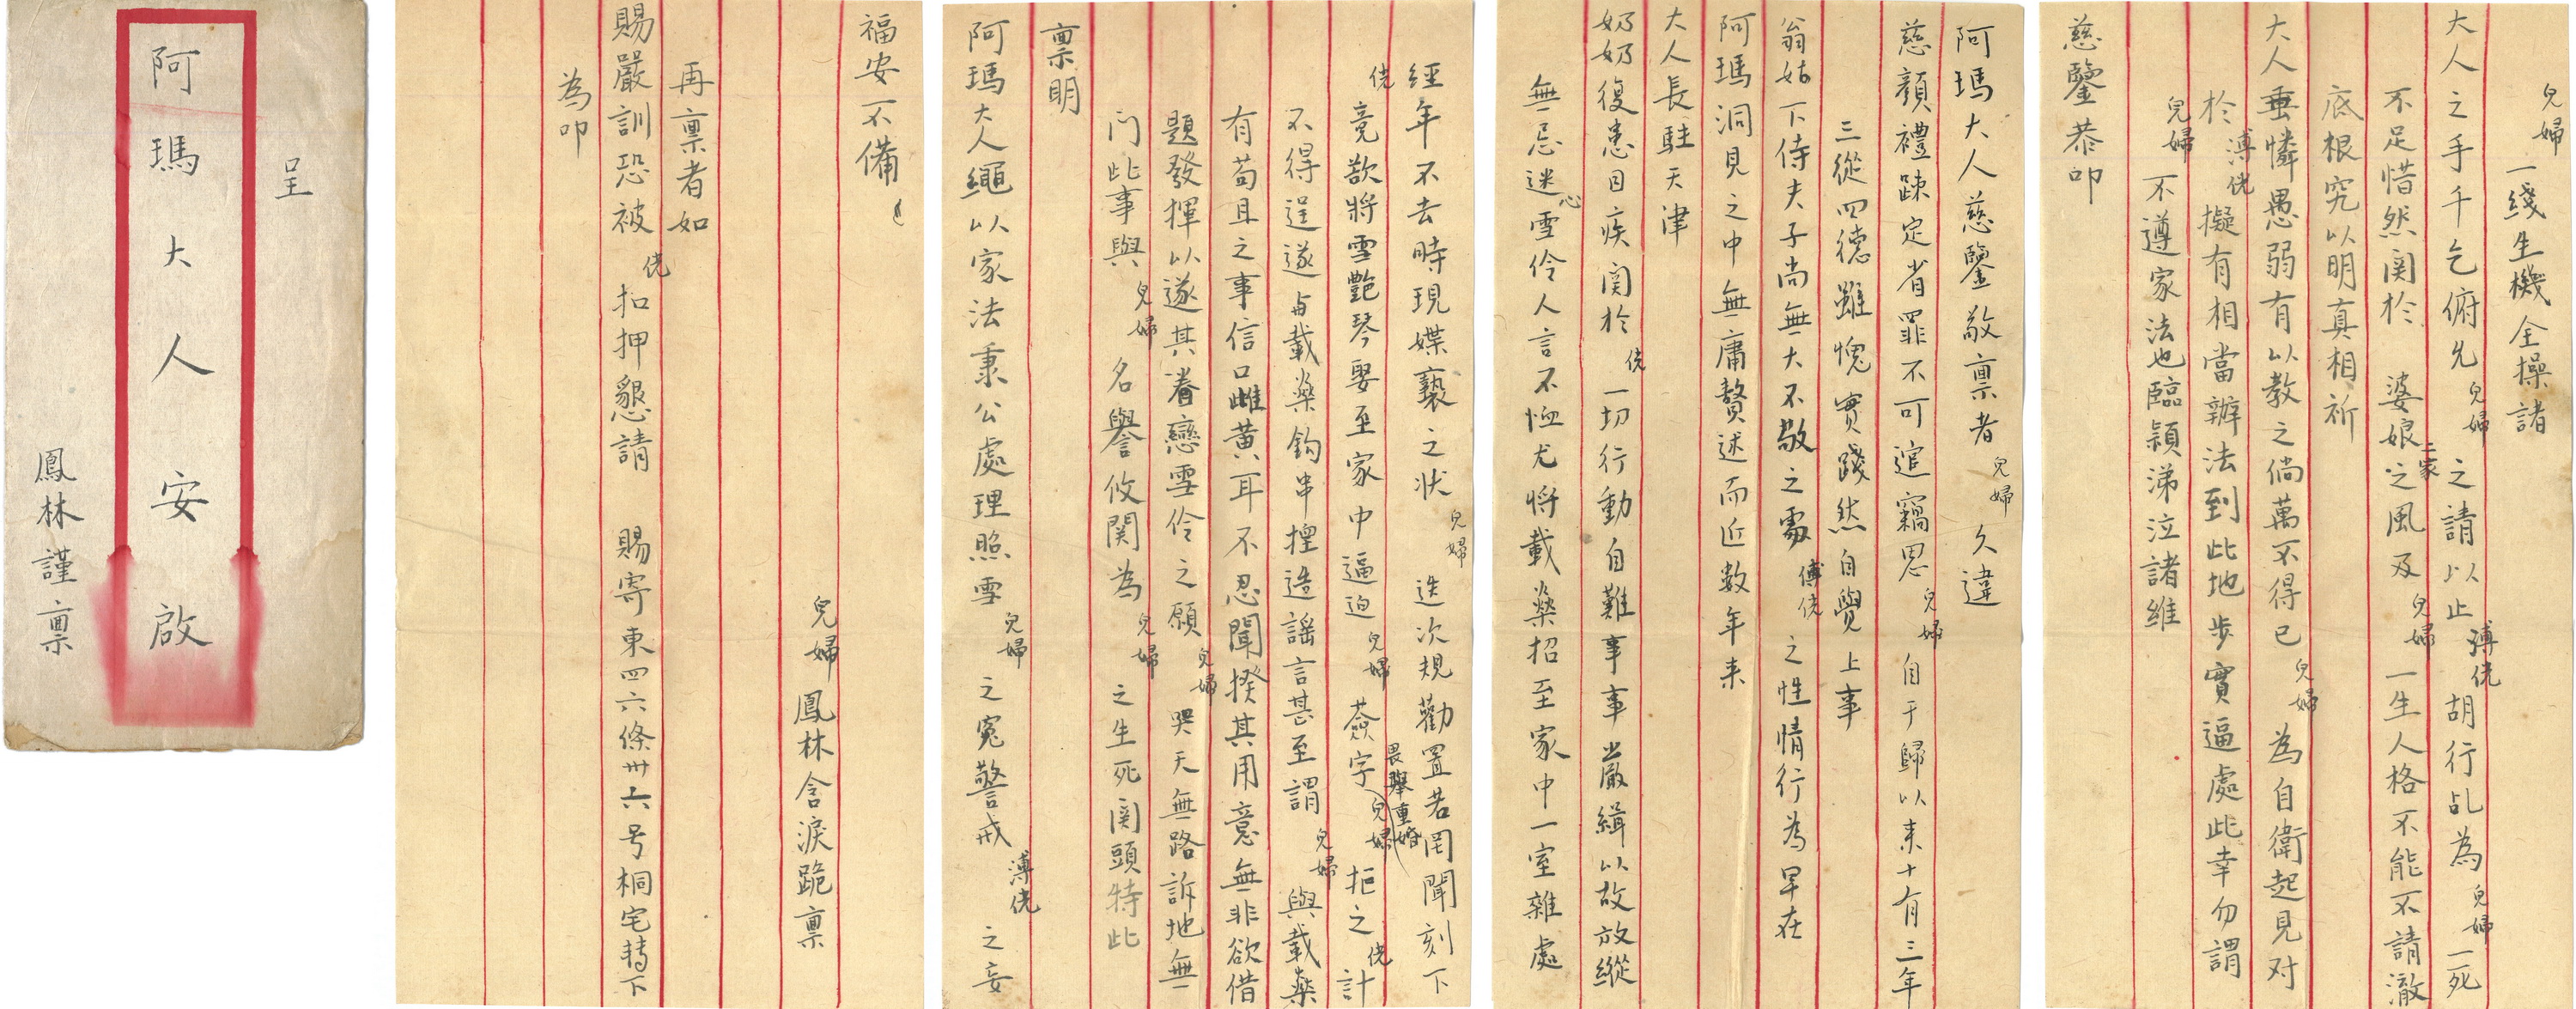 呈
阿瑪大人安啟
鳳林謹稟
阿瑪大人慈鑒敬稟者兒婦久違
慈顏禮踈定省罪不可逭竊思兒婦自于歸以来十有三年
三從四德雖愧實踐然自覺上事
翁姑下侍夫子尚無大不敬之處溥侊之性情行為早在
阿瑪洞見之中無庸贅述而近数年来
大人長駐天津
奶奶復患目疾関於侊一切行動自難事事嚴緝以故放縱
無忌迷心雪伶人言不恤尤將載燊招至家中一室雜處
經年不去時現媟褻之狀兒婦迭次規勸置若罔聞刻下
侊竟欲將雪艷琴娶至家中逼迫兒婦簽字兒婦畏舉重婚拒之侊計
不得逞遂与載燊鈎串揑造謠言甚至謂兒婦與載燊
有苟且之事信口雌黄耳不忍聞揆其用意無非欲借
題發揮以遂其眷戀雪伶之願兒婦哭天無路訴地無
门此事與兒婦名譽攸関為兒婦之生死関頭特此
稟明
阿瑪大人繩以家法秉公處理照雪兒婦之寃警戒溥侊之妄
兒婦一綫生機全操諸
大人之手千乞俯允兒婦之請以止溥侊胡行乱為兒婦一死
不足惜然関於婆娘二家之風及兒婦一生人格不能不請澈
底根究以明真相祈
大人垂憐愚弱有以教之倘萬不得已兒婦為自衛起見对
於溥侊擬有相當辦法到此地步實逼處此幸勿謂
兒婦不遵家法也臨穎涕泣諸維
慈鑒恭叩
福安不備
兒婦鳳林含淚跪稟
再稟者如
賜嚴訓恐被侊扣押懇請賜寄東四六條卅六号桐宅轉下
為叩